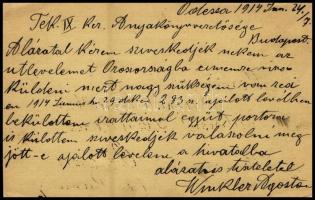 Odessa 1914 Jun. 24/7.
Tek. IX ker. Anyakönyvvezetősége
Budapest
Alázatal kérem sziveskedjék nekem az
utlevelemet Oroszországba cimemre
küldeni mert nagy szükségem van reá
én 1914 Junius hó 9 dikén 293 n. ajánlott levélben
beküldöttem irattaimal együtt, portomat
is küldtem sziveskedjék válaszolni meg
jött-e ajálott levelem a hivatalba
alázatos tisztelettel
Winkler Ágoston